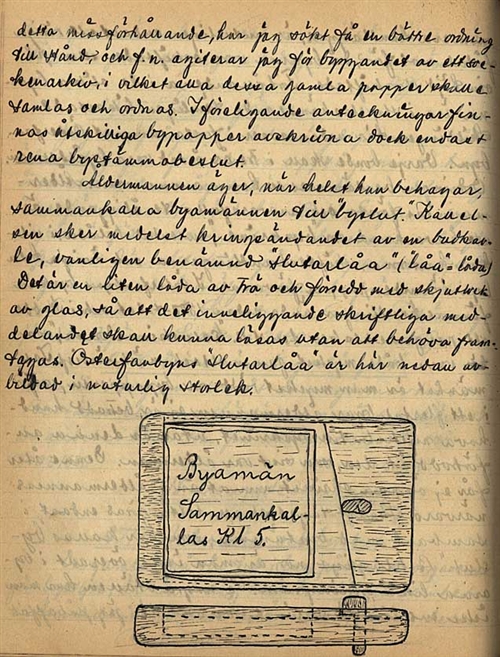 detta missförhållande, har jag sökt få en bättre ordning
till stånd, och f.n. agiterar jag för byggandet av ett soc-
kenarkiv, i vilket alla dessa gamla papper skulle
samlas och ordnas. I föreliggande anteckningar fin-
nas åtskilliga bypapper avskrivna dock endast
rena bystämmobeslut.
Åldermannen äger, när helst han behagar,
sammankalla byamännen till "byslut." Kallel-
sen sker medelst kringsändandet av en budkav-
le, vanligen benämnd "slutarlåa" ("låa" = låda)
Det är en liten låda av trä och försedd med skjutlock
av glas, så att det inneliggande skriftliga med-
delandet skall kunna läsas utan att behöva fram-
tagas. Österfanbyns "slutarlåa" är här nedan av-
bildad i naturlig storlek.
Byamän
Sammankal-
las Kl 5.